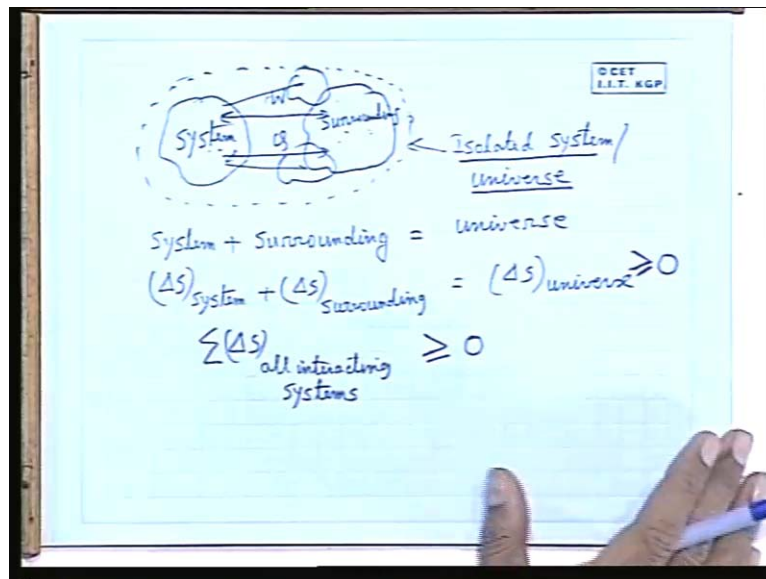 © CET
I.I.T. KGP
W
System
Surrounding
Q
Isolated system/
universe
System + Surrounding = universe
(ΔS)system + (ΔS)surrounding = (ΔS)universe ≥ 0
∑(ΔS)all interacting systems ≥ 0